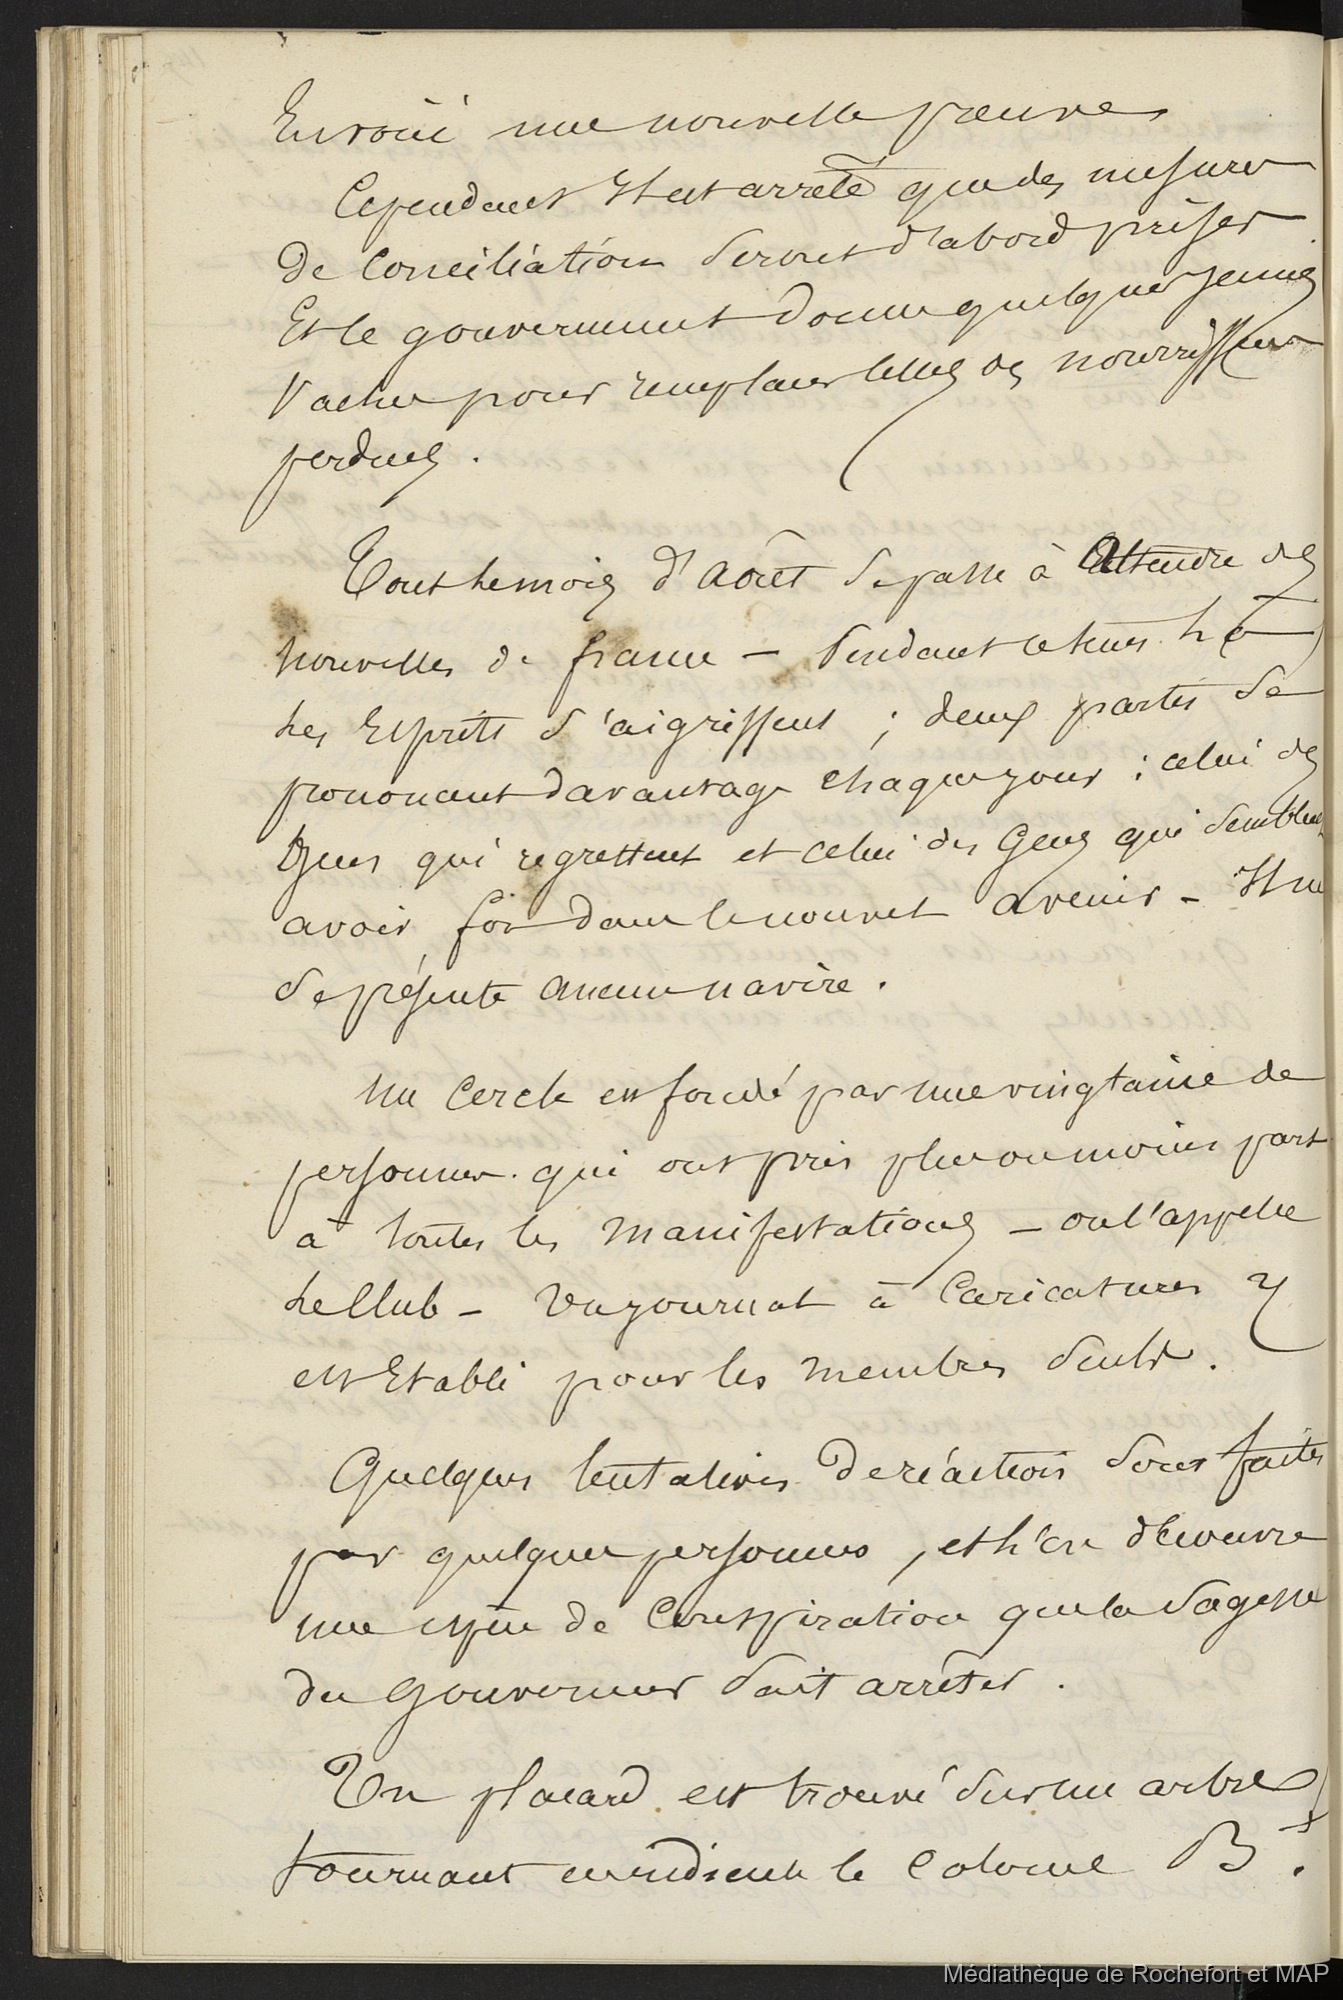 En voici une nouvelle preuve.
Cependant Il est arrêté que des mesures
De Conciliation seront d'abord prises
Et le gouvernement donne quelques jeunes
Vaches pour remplacer celles des nourrisseurs
perdues.
Tout le mois d'Août se passe à Attendre des
nouvelles de france — Pendant ce tems là
les Esprits s'aigrissent ; deux partis se
prononcent davantage chaque jour : celui des
Gens qui regrettent et celui des Gens qui semblent
avoir foi dans le nouvel avenir — Il ne
se présente aucun navire.
Un Cercle est fondé par une vingtaine de
personnes qui ont pris plus ou moins part
à toutes les manifestations — on l'appelle
le Club — Un journal à Caricatures y
est Etabli pour les membres seuls.
Quelques tentatives de réaction sont faites
par quelques personnes, et l'on découvre
une espèce de Conspiration que la sagesse
du gouverneur sait arrêter.
Un placard est trouvé sur un arbre
tournant en ridicule le Colonel B.
Médiathèque de Rochefort et MAP